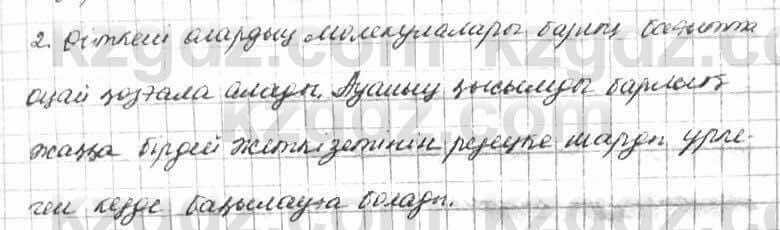 2. Өйткені олардың молекулалары барлық бағытта
оңай қозғала алады. Ауаның қысымды барлық
жаққа бірдей жеткізетінін резеңке шарды үрле-
ген кезде бақылауға болады.